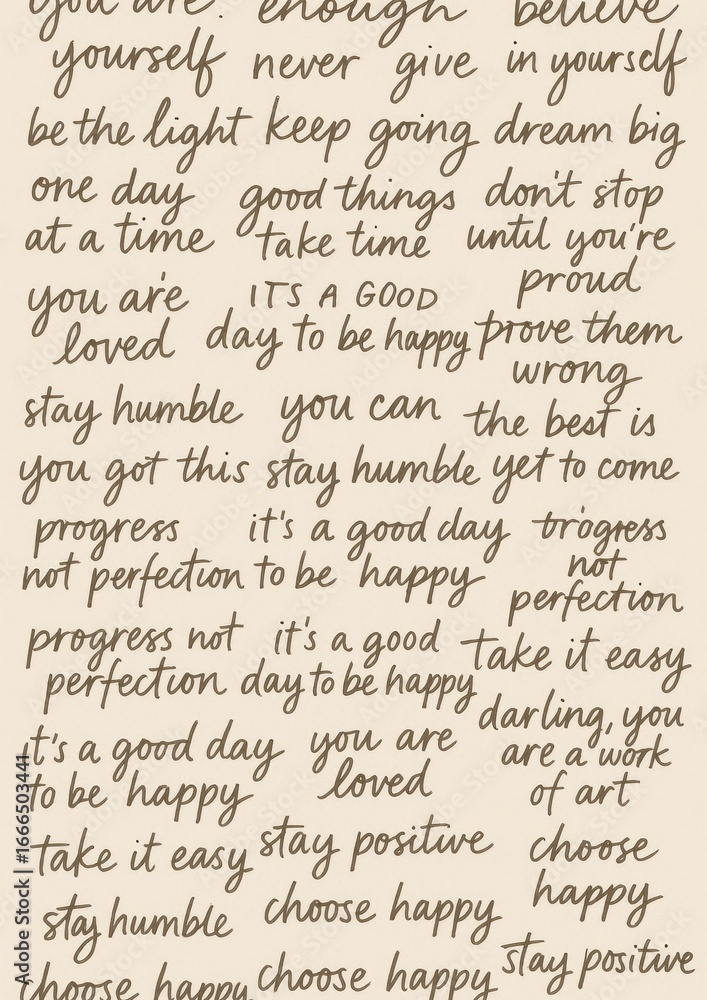 you are.
enough
believe
yourself
never give
in yourself
be the light
keep going
dream big
one day
at a time
good things
take time
don't stop
until you're
proud
you are
loved
ITS A GOOD
day to be happy
prove them
wrong
stay humble
you can
the best is
yet to come
you got this
stay humble
progress
not perfection
it's a good day
to be happy
trogress
not
perfection
progress not
perfection
it's a good
day to be happy
take it easy
t's a good day
to be happy
you are
loved
darling, you
are a work
of art
take it easy
stay positive
choose
happy
stay humble
choose happy
stay positive
choose happy
choose happy
Adobe Stock | #1666503441